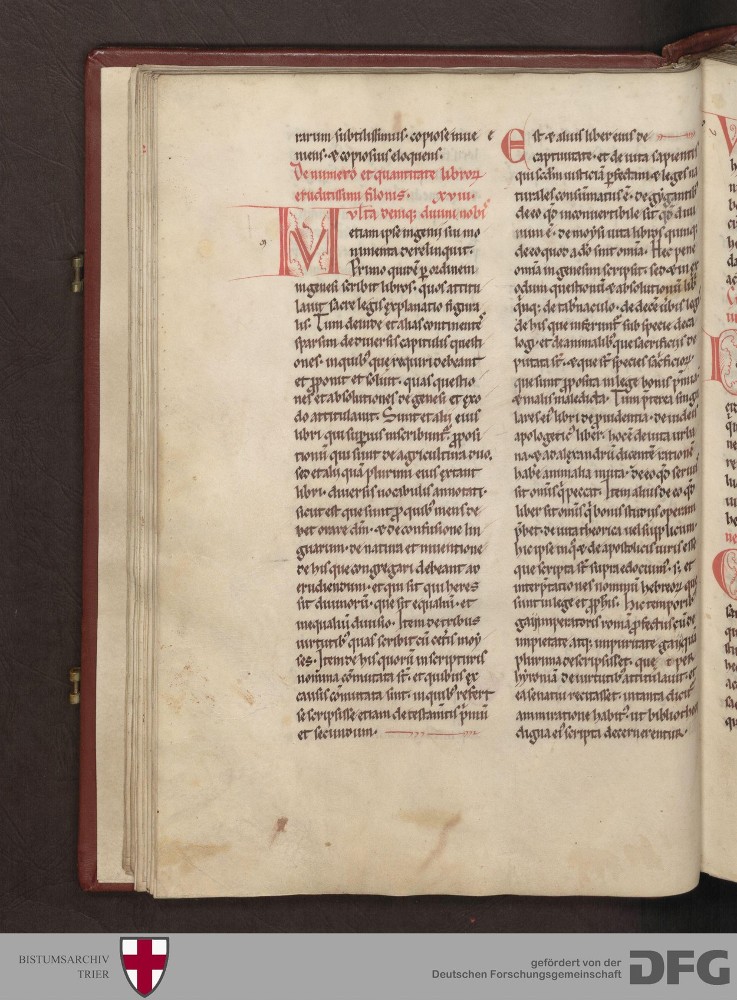 rarum subtilissimus. copiose inue
niens. & copiosius eloquens.
De numero et quantitate libroꝝ
eruditissimi filonis. xviii.
Multa deniq; diuini nobis
etiam ipse ingenij sui mo
numenta dereliquit.
Primo quidē ꝑ ordinem
in genesi scribit libros. quos attitu
lauit sacre legis explanatio figura
lis. Tum deinde et alias continentes
sparsim de diuersis capitulis questi
ones. in quibus que requiri debeant
et ꝓponit et soluit. quas questio
nes et absolutiones de genesi et exo
do attitulauit. Sunt et alij eius
libri qui suꝑius inscribunt̄. ꝓposi
tionū qui sunt de agricultura duo.
sed et alij quā plurimi eius extant
libri. diuersis uocabulis annotati.
sicut est que sunt ꝓ quibus mens de
bet orare dm̄. & de confusione lin
guarum. de natura et inuentione
de his que congregari debeant ad
erudiendum. et qui sit qui heres
sit diuinorū. que sit equaliū. et
inequaliū diuisio. Item de tribus
uirtutibus quas scribit cū cet̄is moy
ses. Item de his quorū in scripturis
nomina cōmutata st̄. et quibus ex
causis cōmutata sint. in quibus refert
se scripsisse etiam de testamentis primū
et secundum.
e
Est & alius liber eius de
captiuitate. et de uita sapientis
qui scdm iusticiā ꝑfectam. & leges na
turales consūmatus ē. de gygantibus
de eo qd̄ inconuertibile sit qd̄ diui
num ē. de moysi uita libros quinq;
de eo quod a dō sint omnia. Hec pene
omnia in genesim scripsit. sed & in ex
odum questionū & absolutionū lib
quinq; de tab̄naculo. de decē
de his que inferunt̄ sub specie deca
logi. et de animalibus que sacrificijs de
putata st̄. & que st̄ species sacrificioꝝ.
que sunt ꝓposita in lege bonis premia
& malis maledicta. Tum preterea singu
lares eius libri de ꝓuidentia. de iudeis
apologeticus liber. hoc ē de uita urba
na. & ad alexandrū dicentē rationē
habere animalia muta. de eo qd̄ seruus
sit omnis qui peccat. Item alius de eo qd̄
liber sit omnis qui bonis studiis operam
prebet. de uita theorica uel supplicum.
hic ipse & de apostolicis uiris est
que scripta st̄ supra edocuimus. s; et
interpretationes nominū hebreoꝝ que
sunt in lege et ꝓphetis. Hic temporibus
gaij imperatoris romā ꝓfectus cū de
impietate atq; impuritate gaij
plurima descripsisset. que per
hyroniā de uirtutibus attitulauit. et
ea senatui recitasset. in tanta dicit
ammiratione habitus. ut bibliothecis
digna eius scripta decernerentur.
BISTUMSARCHIV
TRIER
gefördert von der
Deutschen Forschungsgemeinschaft
DFG